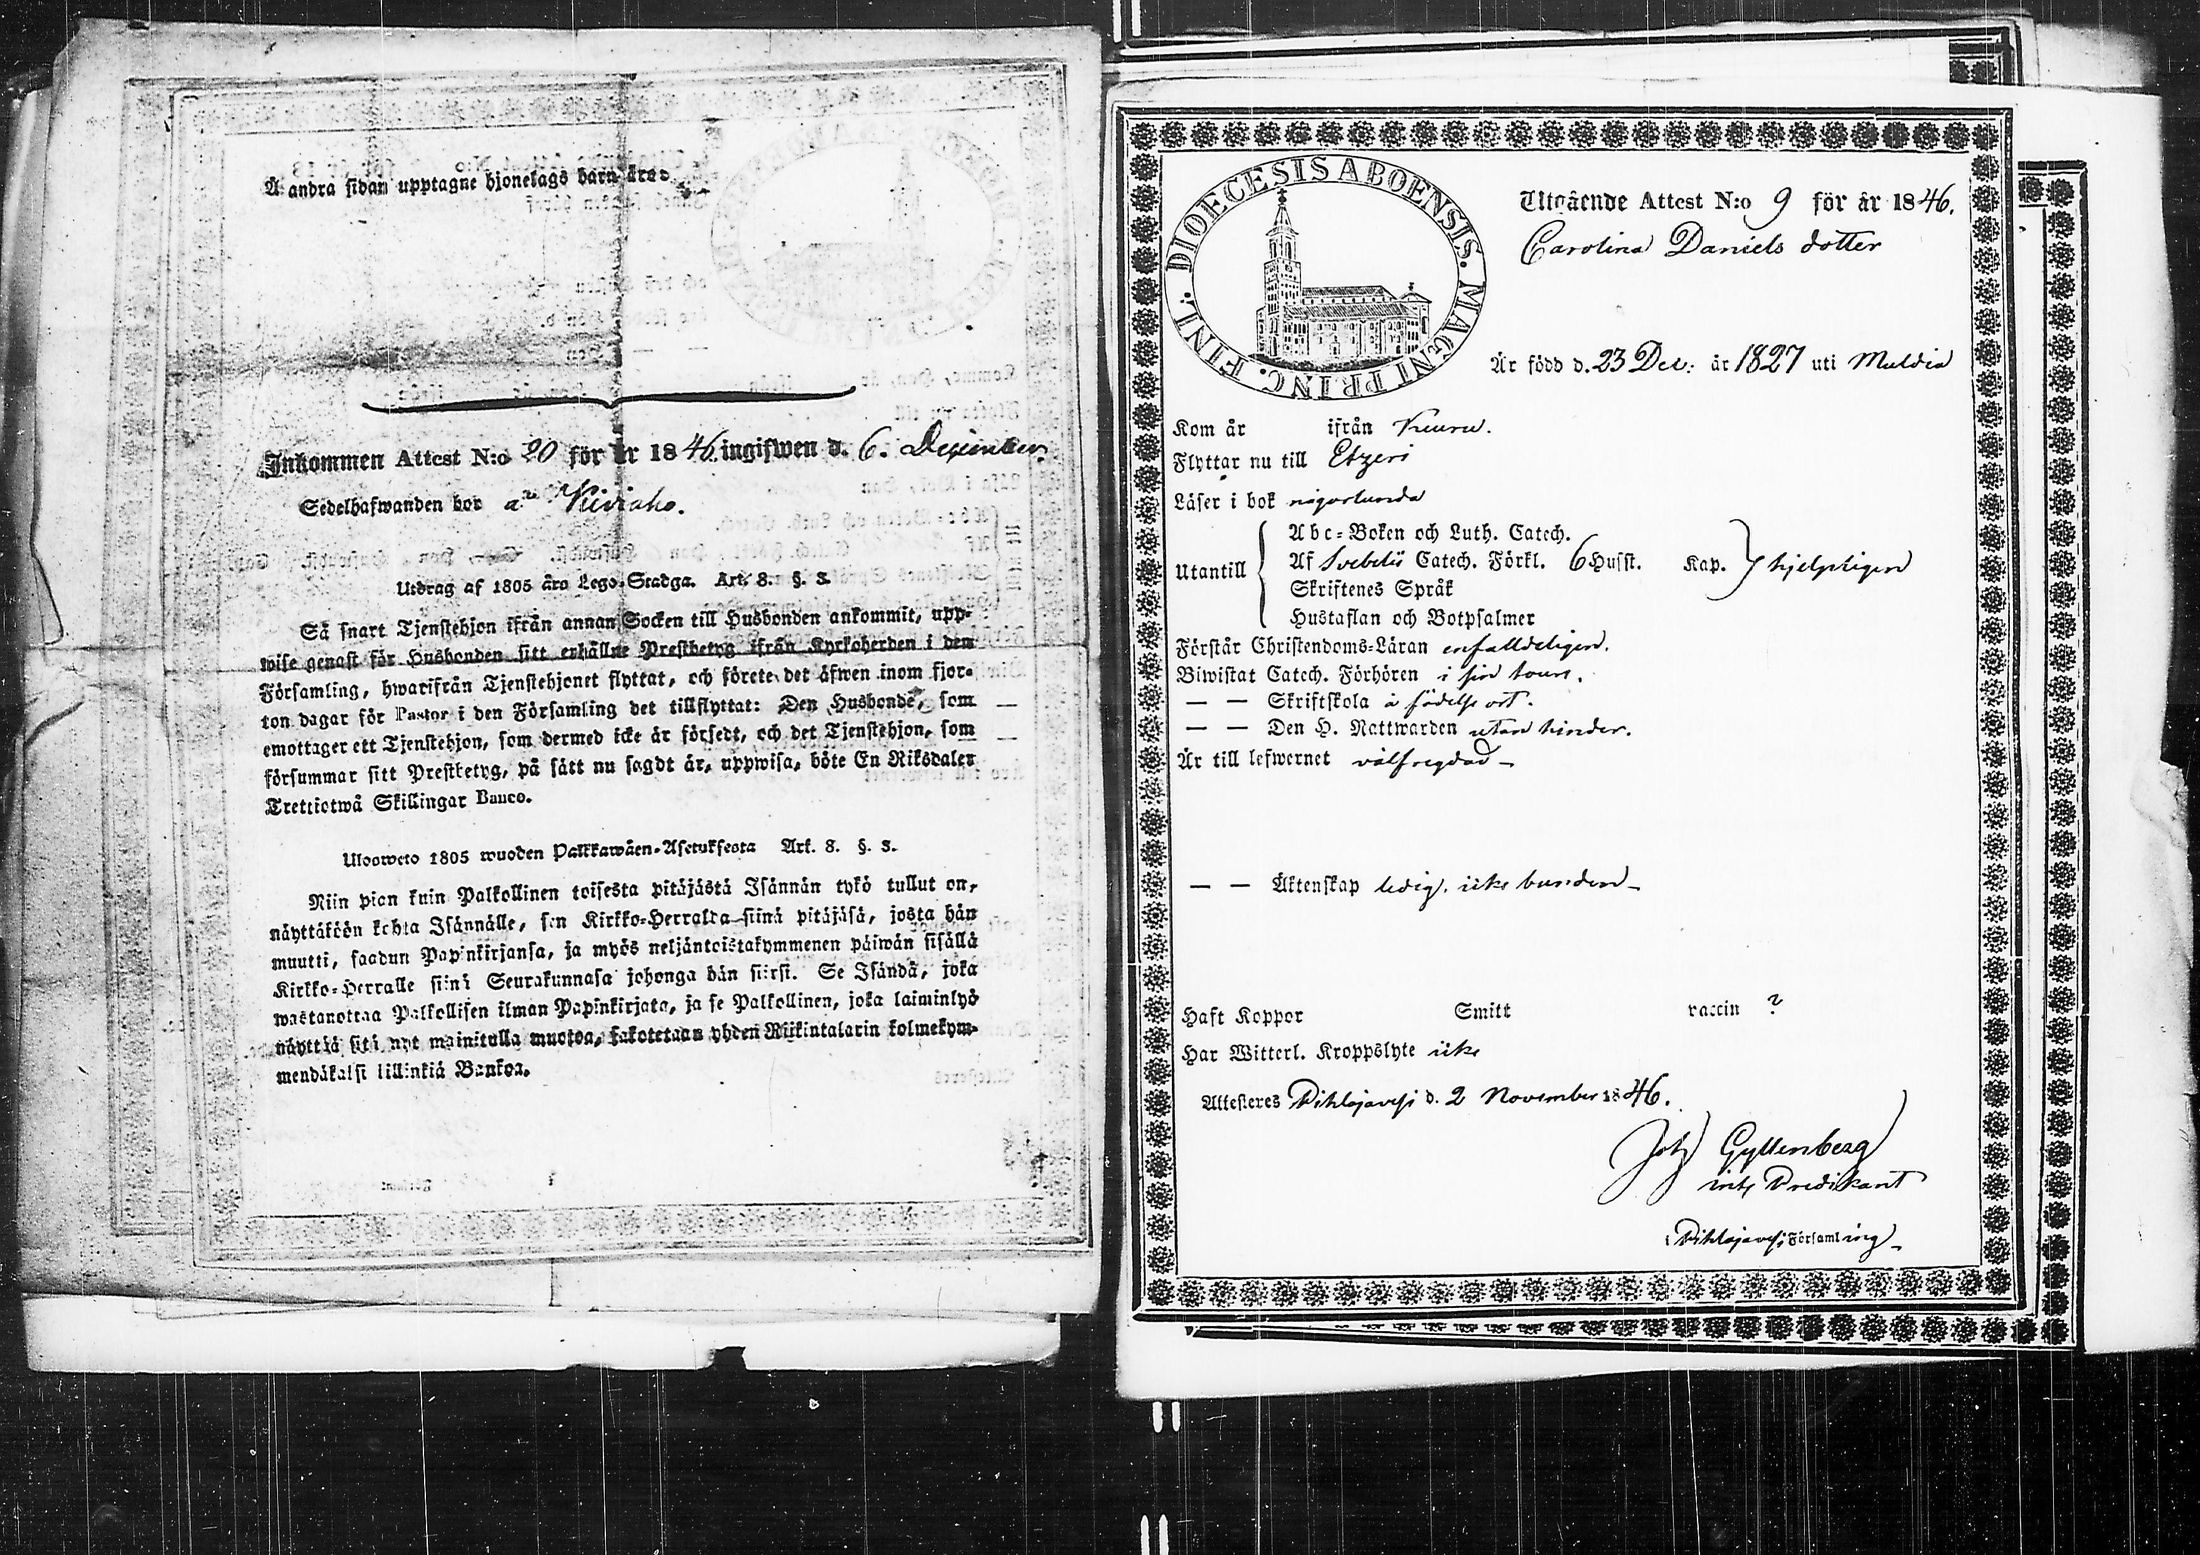 Å andra sidan upptagne hjonelags barn äro
Inkommen Attest N:o 20 för år 1846 ingifwen d. 6. December.
Sedelhafwanden bor å Kiviaho.
Utdrag af 1805 års Lego-Stadga. Art. 8. §. 3.
Så snart Tjenstehjon ifrån annan Socken till Husbonden ankommit, upp-
wise genast för Husbonden sitt erhållne Prestbetyg ifrån Kyrkoherden i den
Församling, hwarifrån Tjenstehjonet flyttat, och förete det äfwen inom fjor-
ton dagar för Pastor i den Församling det tillflyttat: Den Husbonde, som
emottager ett Tjenstehjon, som dermed icke är försedt, och det Tjenstehjon, som
försummar sitt Prestbetyg, på sätt nu sagdt är, uppwisa, böte En Riksdaler
Trettiotwå Skillingar Banco.
Ulosweto 1805 wuoden Palkkawäen-Asetuksesta Art. 8. §. 3.
Niin pian kuin Palkollinen toisesta pitäjästä Isännän tykö tullut on,
näyttäköön kohta Isännälle, sen Kirkko-Herralta siinä pitäjäsä, josta hän
muutti, saadun Papinkirjansa, ja myös neljäntoistakymmenen päiwän sisällä
Kirkko-Herralle siinä Seurakunnasa johonga hän siirsi. Se Isändä, joka
wastanottaa Palkollisen ilman Papinkirjata, ja se Palkollinen, joka laiminlyö
näyttää sitä nyt mainitulla muotoa, sakotetaan yhden Riikintalarin kolmekym-
mendäkaksi killinkiä Bankoa.
DIOECESIS ABOENSIS. MAGNI PRINC. FINL.
Utgående Attest N:o 9 för år 1846.
Carolina Daniels dotter
Är född d. 23 Dec: år 1827 uti Muldia
Kom år ifrån Keuru.
Flyttar nu till Etzeri
Läser i bok någorlunda
Utantill
Abc-Boken och Luth. Catech.
Af Svebelii Catech. Förkl. 6 Hufst. Kap. hjelpligen
Skriftenes Språk
Hustaflan och Botpsalmer
Förstår Christendoms-Läran enfalldeligen.
Biwistat Catech. Förhören i sin tour.
— — Skriftskola å födelse ort.
— — Den H. Nattwarden utan hinder.
Är till lefwernet välfregdad —
— — Äktenskap ledig. icke bunden —
Haft Koppor Smitt vaccin ?
Har Witterl. Kroppslyte icke
Attesteres Pihlajavesi d. 2 November 1846.
Joh Gyllenberg
Predikant
i Pihlajavesi Församling